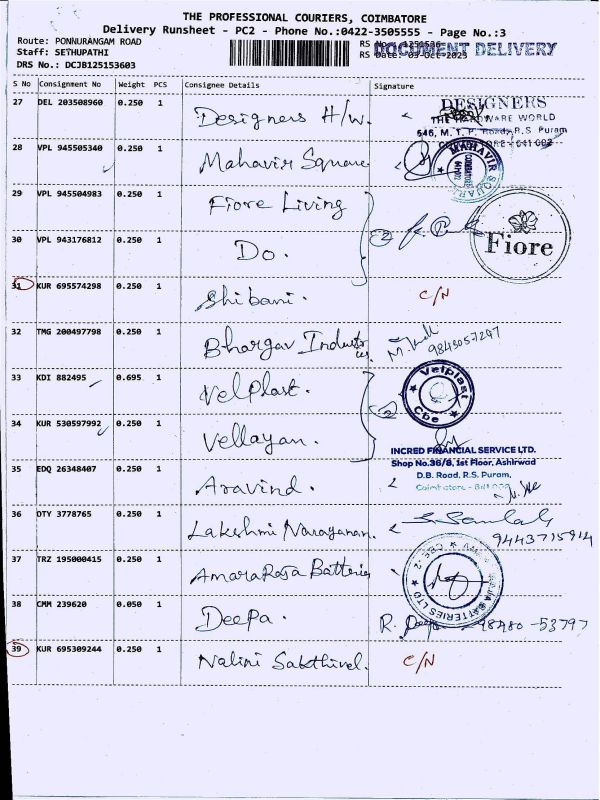 THE PROFESSIONAL COURIERS, COIMBATORE
Delivery Runsheet - PC2 - Phone No.:0422-3505555 - Page No.:3
Route: PONNURANGAM ROAD
Staff: SETHUPATHI
DRS No.: DCJB125153603
RS No.: 1251536
RS Date: 03-Oct-2023
DOCUMENT DELIVERY
S No Consignment No Weight PCS Consignee Details Signature
27 DEL 203508960 0.250 1 Designers H/w.
DESIGNERS
THE HARDWARE WORLD
546, M. T. P. Road, R.S. Puram
COIMBATORE - 641 002
28 VPL 945505340 0.250 1 Mahavir Square
MAHAVIR SQUARE
COIMBATORE
29 VPL 945504983 0.250 1 Fiore Living
2
Fiore
30 VPL 943176812 0.250 1 Do.
31 KUR 695574298 0.250 1 Shibani. C/N
32 TMG 200497798 0.250 1 Bhargav Industries.
9843057247
33 KDI 882495 0.695 1 Velplast.
2
Velplast
Cbe
34 KUR 530597992 0.250 1 Vellayan.
INCRED FINANCIAL SERVICE LTD.
Shop No.36/8, 1st Floor, Ashirwad
D.B. Road, R.S. Puram,
Coimbatore - 641 002
35 EDQ 26348407 0.250 1 Aravind.
36 DTY 3778765 0.250 1 Lakshmi Narayanan.
9443715914
37 TRZ 195000415 0.250 1 AmaraRaja Batteries
BATTERIES LTD
CBE-2
38 CMM 239620 0.050 1 Deepa.
R. Deepa 98480-53797
39 KUR 695309244 0.250 1 Nalini Sakthivel. C/N